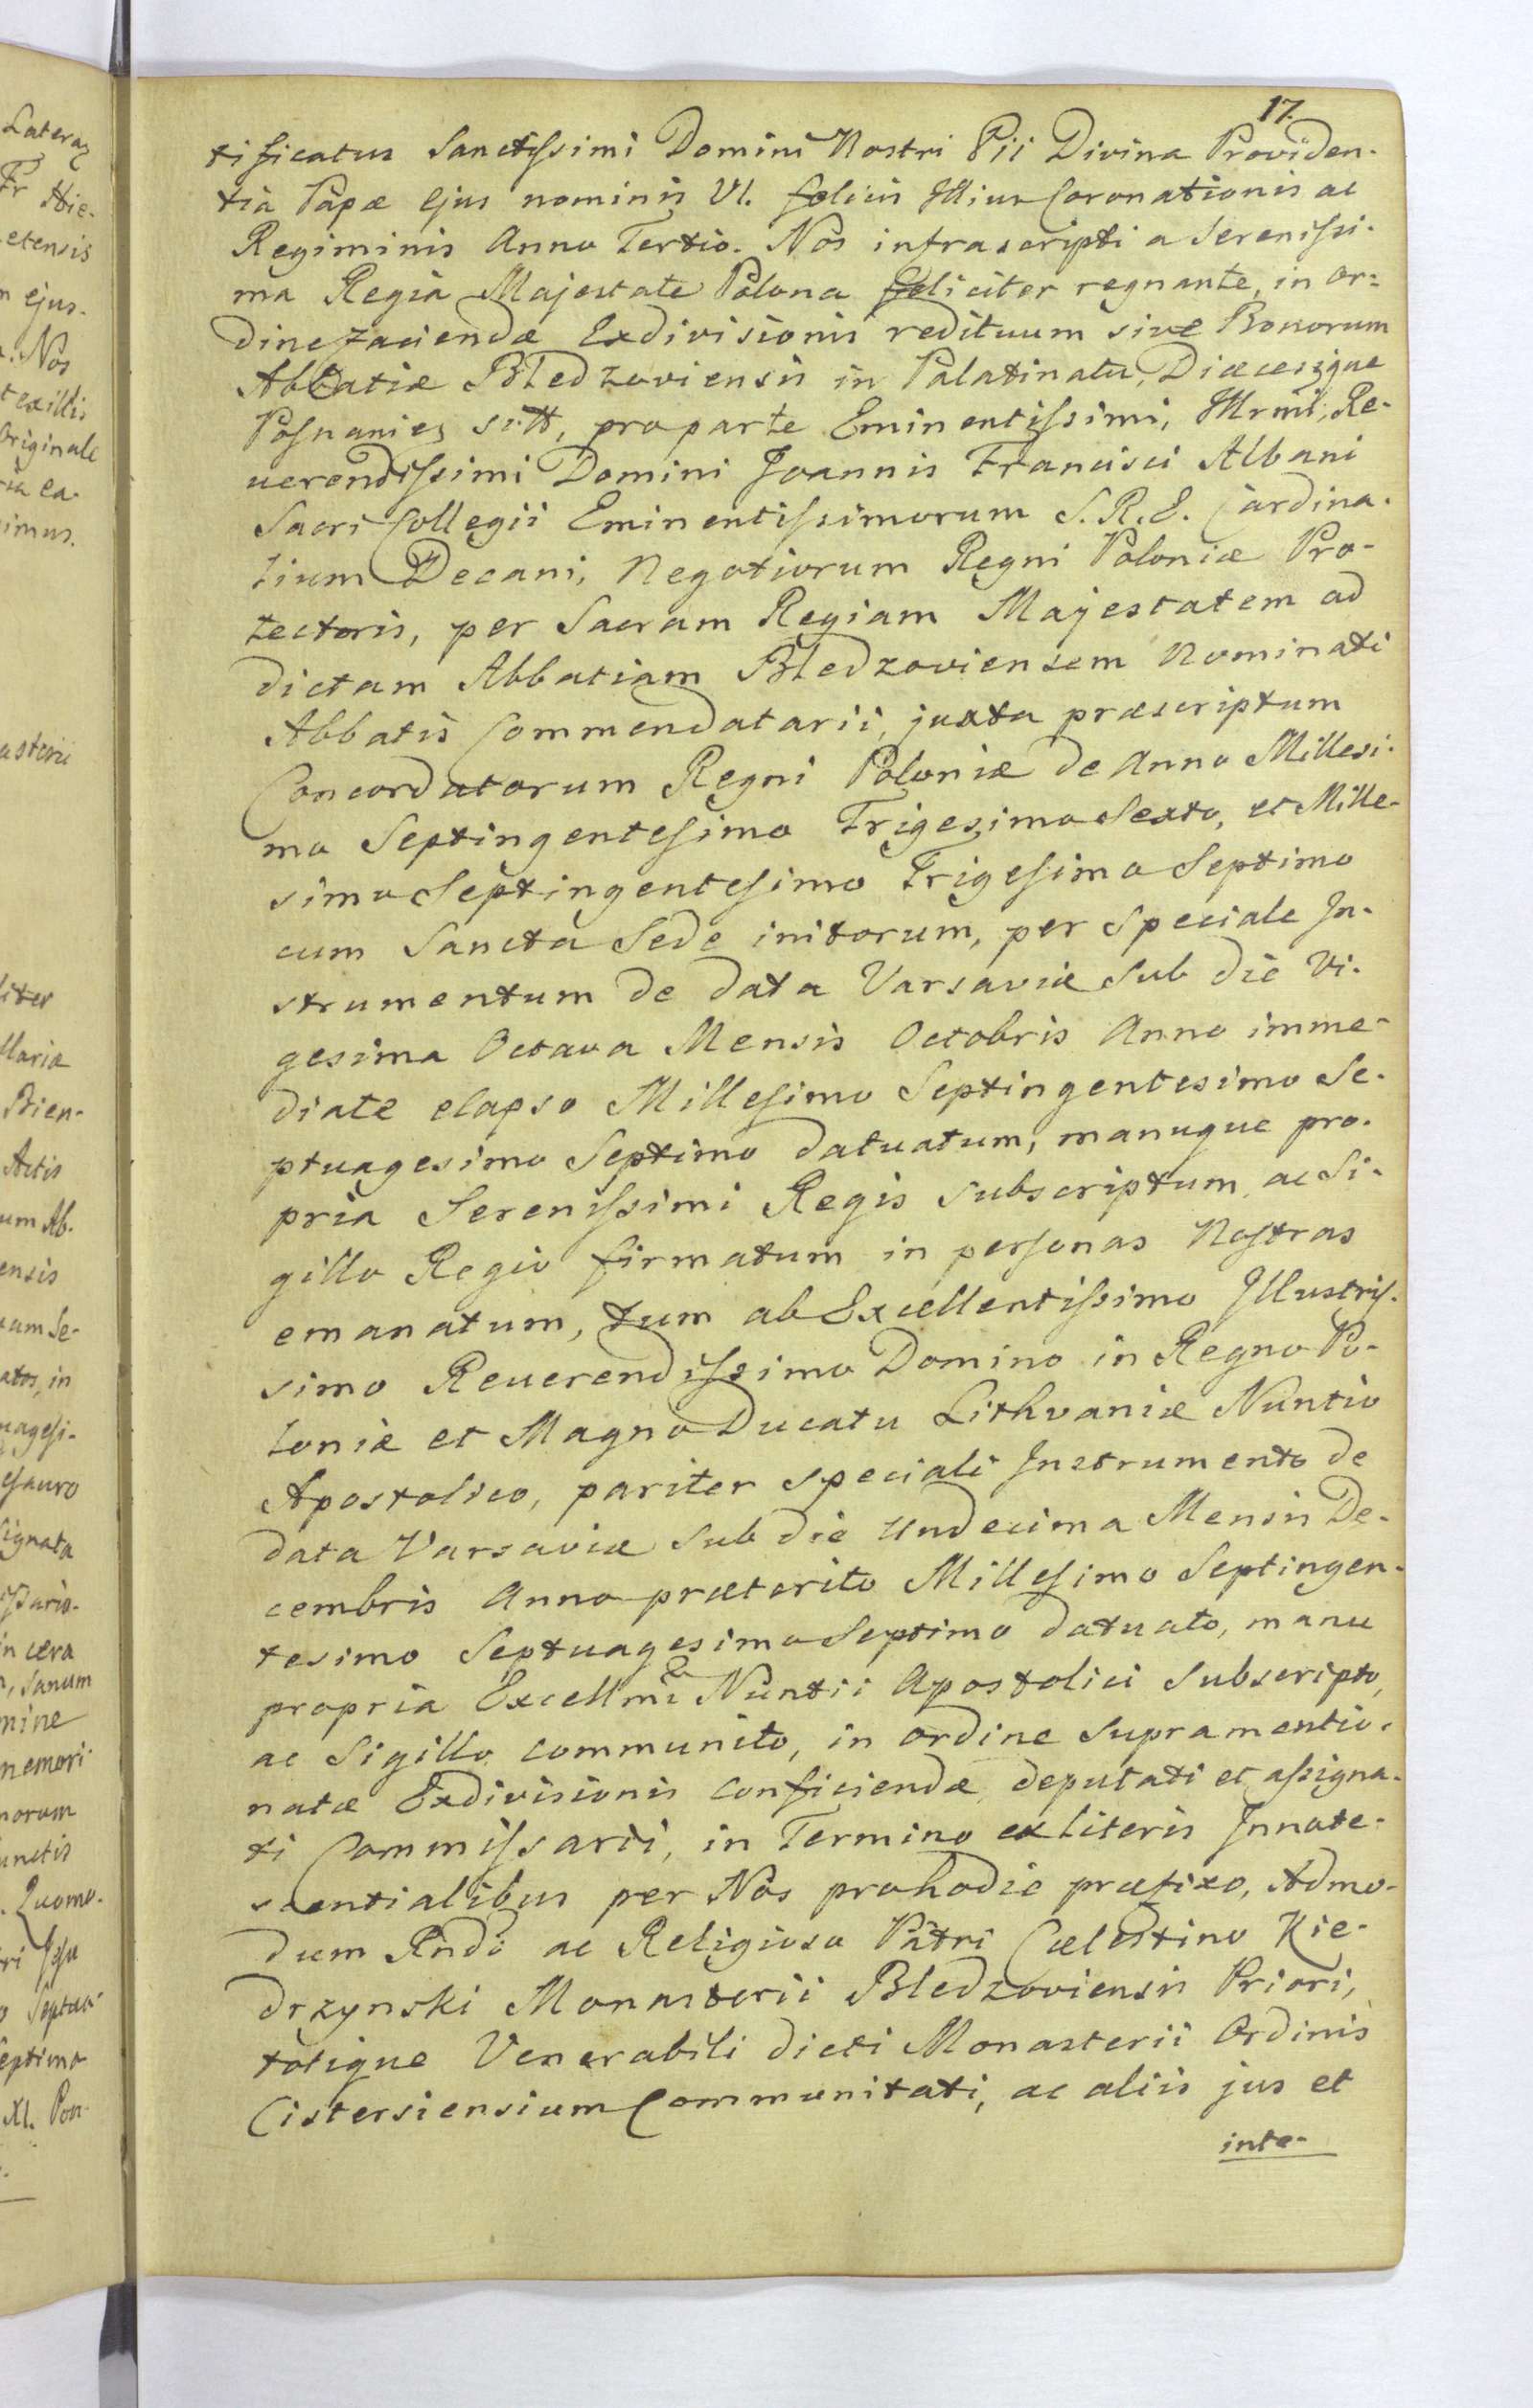 17.
tificatus Sanctissimi Domini Nostri Pii Divina Providen-
tia Papæ Ejus nominis VI. fœlicis Illius Coronationis ac
Regiminis Anno Tertio. Nos infrascripti a Serenissi-
ma Regia Majestate Polona fœliciter regnante, in or-
dine faciendæ Exdivisionis redituum sive Bonorum
Abbatiæ Bledzoviensis in Palatinatu, Diœcesique
Posnanien sitt, pro parte Eminentissimi, Illrmi, Re-
uerendissimi Domini Joannis Francisci Albani
Sacri Collegii Eminentissimorum S.R.E. Cardina-
lium Decani, Negotiorum Regni Poloniæ Pro-
tectoris, per Sacram Regiam Majestatem ad
dictam Abbatiam Bledzoviensem Nominati
Abbatis Commendatarii, juxta præscriptum
Concordatorum Regni Poloniæ de Anno Millesi-
mo Septingentesimo Trigesimo Sexto, et Mille-
simo Septingentesimo Trigesimo Septimo
cum Sancta Sede initorum, per Speciale In-
strumentum de data Varsaviæ sub die Vi-
gesima Octava Mensis Octobris Anno imme-
diate elapso Millesimo Septingentesimo Se-
ptuagesimo Septimo datuatum, manuque pro-
pria Serenissimi Regis subscriptum, ac Si-
gillo Regio firmatum in personas Nostras
emanatum, tum ab Excellentissimo Illustris-
simo Reuerendissimo Domino in Regno Po-
loniæ et Magno Ducatu Lithvaniæ Nuntio
Apostolico, pariter speciali Instrumento de
data Varsaviæ sub die Undecima Mensis De-
cembris Anno præterito Millesimo Septingen-
tesimo Septuagesimo Septimo datuato, manu
propria Excellmi Nuntii Apostolici subscripto,
ac Sigillo communito, in ordine supramentio-
natæ Exdivisionis conficiendæ, deputati et assigna-
ti Commissarii, in Termino ex literis Innote-
scentialibus per Nos pro hodie præfixo, Admo-
dum Rndo ac Religioso Patri Cœlestino Kie-
drzynski Monasterii Bledzoviensis Priori,
totique Venerabili dicti Monasterii Ordinis
Cistersiensium Communitati, ac aliis jus et
inte-